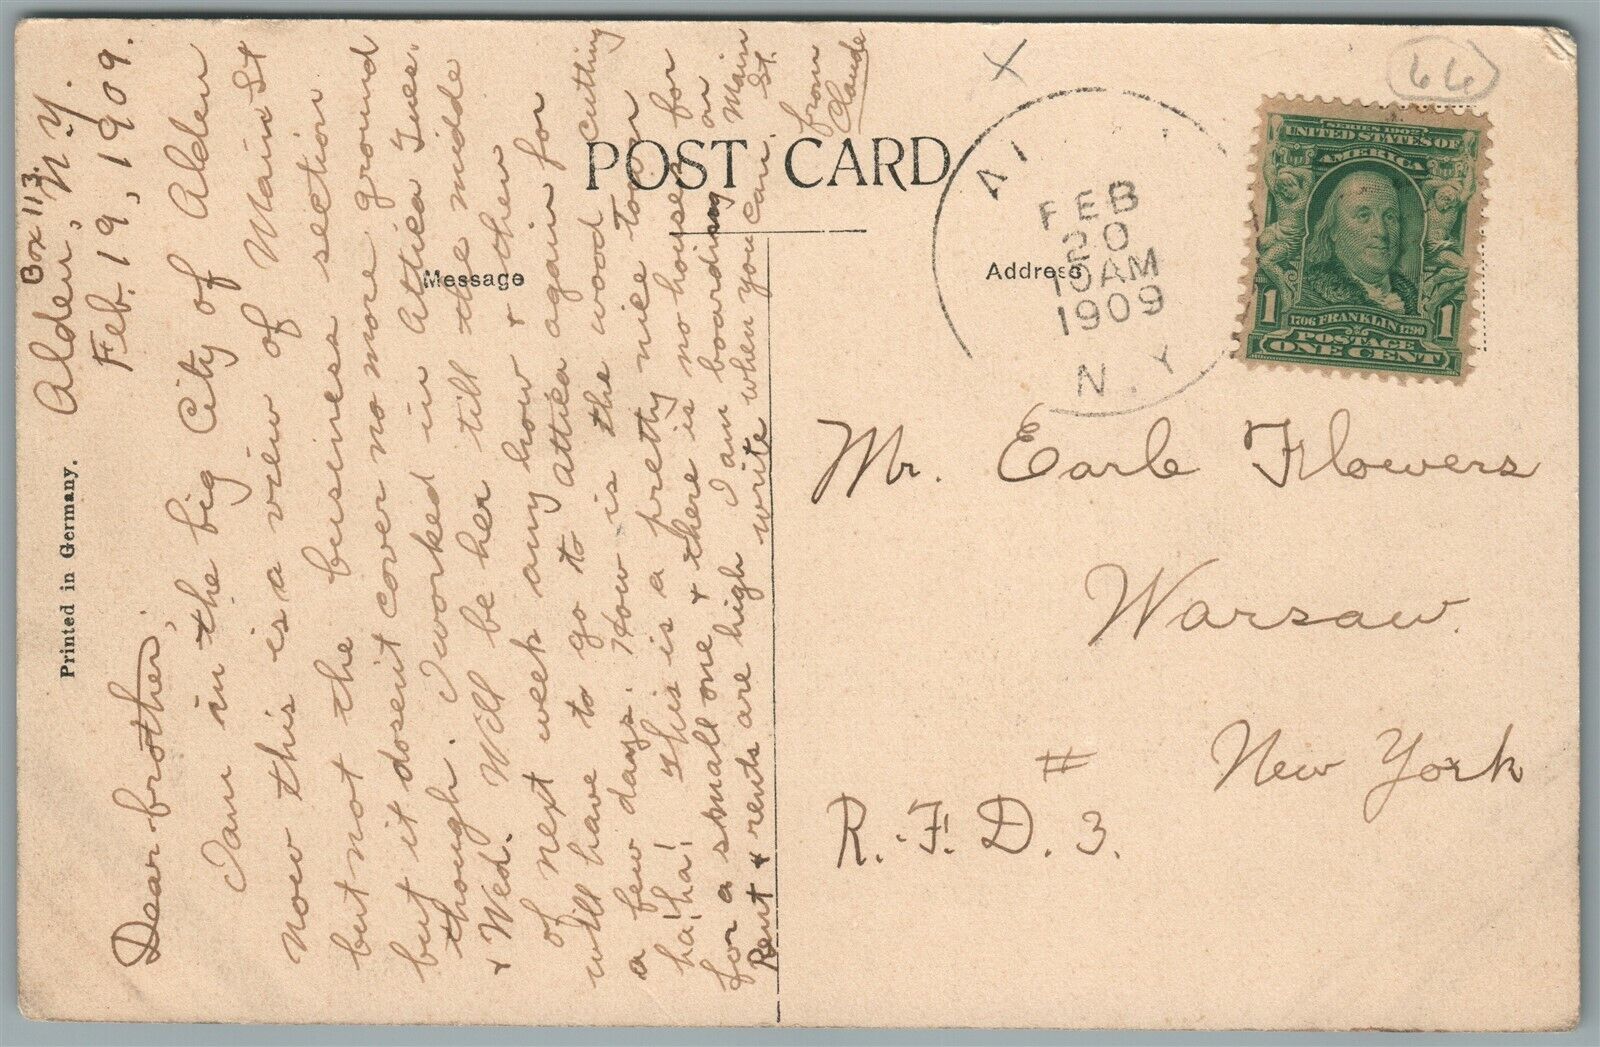 Printed in Germany.
Box 113.
Alden, N.Y.
Feb. 19, 1909.
Dear brother;
I am in the big City of Alden
now this is a view of Main St
but not the business section
but it dosent cover no more ground
though. I worked in Attica Tues.
+ Wed. Will be her till the midde
of next week any how + then
will have to go to Attica again for
a few days. How is the wood cutting
ha! ha! ha! This is a pretty nice town
for a small one + there is no houses for
Rent + rents are high I am boarding on Main St.
write when you can.
from
Claude
POST CARD
Message
Address
FEB
20
10AM
1909
N.Y.
66
SERIES 1902
UNITED STATES OF
AMERICA
1 1706 FRANKLIN 1790 1
POSTAGE
ONE CENT
Mr. Earle Flowers
Warsaw.
# New York
R.F.D. 3.